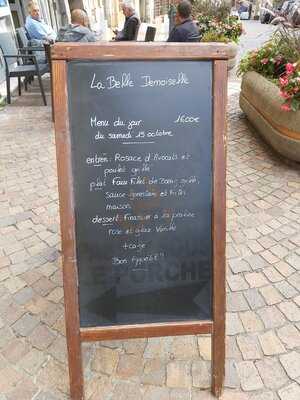 La Belle Demoiselle
Menu du jour 16.00€
du samedi 15 octobre
entrée: Rosace d'Avocats et
poulet grillé
plat: Faux Filet de Boeuf grillé,
sauce forestière et Frites
maison
dessert: Financier à la praline
rose et glace Vanille
+ café
Bon Appétit!!
PORCHE